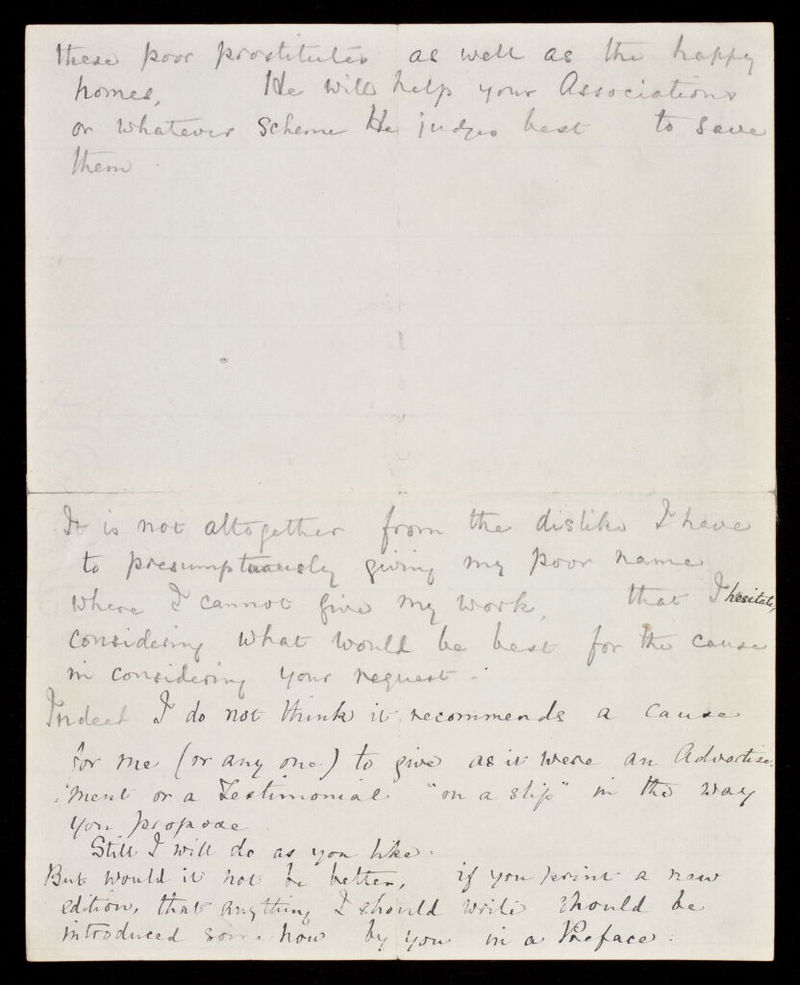 these poor prostitutes as well as the happy
homes, He will help your Associations
or whatever Scheme He judges best to save
them.
It is not altogether from the dislike I have
to presumptuously giving my poor name
where I cannot give my work, that I hesitate,
considering what would be best for the cause
in considering your request.
Indeed I do not think it recommends a cause
for me (or any one) to give as it were an Advertise-
:ment or a Testimonial "on a slip" in the way
you propose
Still I will do as you like.
But would it not be better, if you print a new
edition, that anything I should write should be
introduced some how by you in a Preface.